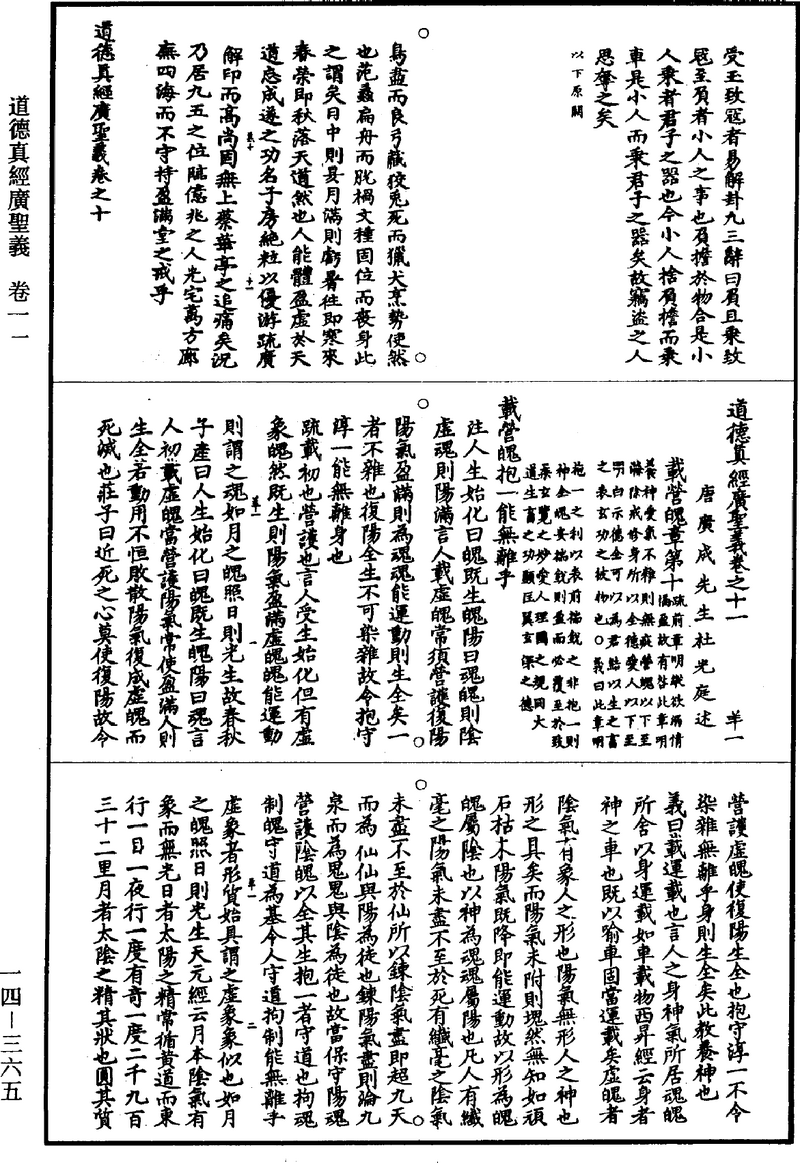 道德真經廣聖義　卷一一
一四—三六五
受玉致寇者易解卦九三辭曰負且乘致
寇至負者小人之事也負擔於物合是小
人乘者君子之器也今小人捨負擔而乘
車是小人而乘君子之器矣故竊盜之人
思奪之矣
以下原闕
鳥盡而良弓藏狡兔死而獵犬烹勢使然
也范蠡扁舟而脫禍文種固位而喪身此
之謂矣日中則昃月滿則虧暑往即寒來
春榮即秋落天道然也人能體盈虛於天
道忘成遂之功名子房絶粒以優游疏廣
解印而高尚固無上蔡華亭之追痛矣況
乃居九五之位臨億兆之人光宅萬方廓
無四海而不守持盈滿堂之戒乎
道德真經廣聖義卷之十
道德真經廣聖義卷之十一　羊一
唐廣成先生杜光庭述
載營魄章第十
疏前章明縱欲溺情
滿盈故有咎此章明
養神愛氣不雜則無疵營魄以下至
滌除戒修身所以全德愛人以下至
明白示德全可以為君結以生之畜
之表玄功之被物也○義曰此章明
抱一之利以表前揣銳之非抱一則
神全魄安揣銳則盈而必覆至於致
柔玄覽之妙愛人理國之規用大
道生畜之功顯匡翼玄深之德
載營魄抱一能無離乎
注人生始化曰魄既生魄陽曰魂魄則陰
虛魂則陽滿言人載虛魄常須營護復陽
陽氣盈滿則為魂魂能運動則生全矣一
者不雜也復陽全生不可染雜故令抱守
淳一能無離身也
疏載初也營護也言人受生始化但有虛
象魄然既生則陽氣盈滿虛魄魄能運動
則謂之魂如月之魄照日則光生故春秋
子產曰人生始化曰魄既生魄陽曰魂言
人初載虛魄當營護陽氣常使盈滿人則
生全若動用不恒敗散陽氣復成虛魄而
死滅也莊子曰近死之心莫使復陽故令
營護虛魄使復陽生全也抱守淳一不令
染雜無離乎身則生全矣此教養神也
義曰載運載也言人之身神氣所居魂魄
所舍以身運載如車載物西昇經云身者
神之車也既以喻車固當運載矣虛魄者
陰氣有象人之形也陽氣無形人之神也
形之具矣而陽氣未附則塊然無知如頑
石枯木陽氣既降即能運動故以形為魄
魄屬陰也以神為魂魂屬陽也凡人有纖
毫之陽氣未盡不至於死有纖毫之陰氣
未盡不至於仙所以鍊陰氣盡即超九天
而為仙仙與陽為徒也鍊陽氣盡則淪九
泉而為鬼鬼與陰為徒也故當保守陽魂
營護陰魄以全其生抱一者守道也拘魂
制魄守道為基令人守道拘制能無離乎
虛象者形質始具謂之虛象象似也如月
之魄照日則光生天元經云月本陰氣有
象而無光日者太陽之精常循黃道而東
行一日一夜行一度有奇一度二千九百
三十二里月者太陰之精其狀也圓其質